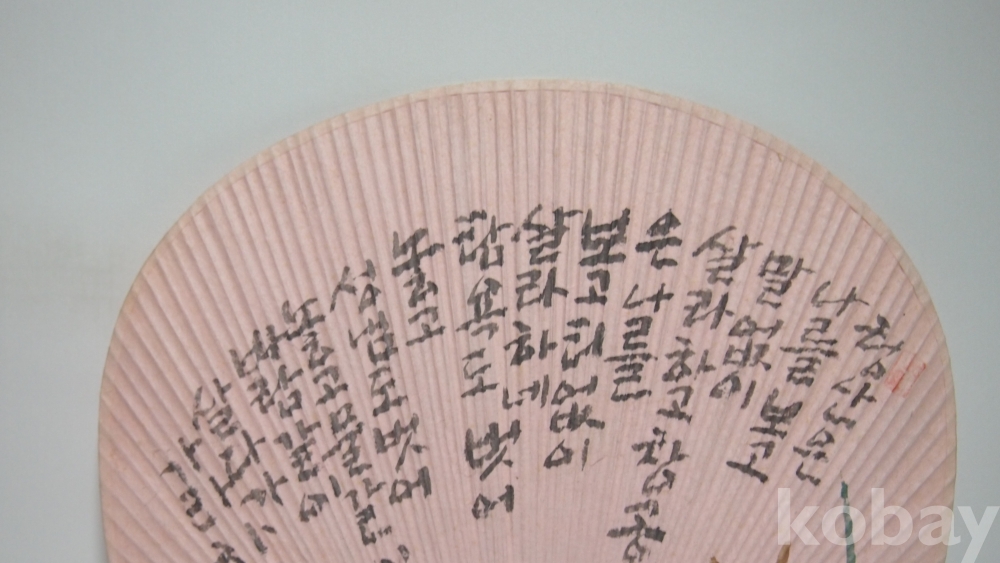 청산은
나를 보고
말없이
살라하고 창공
은 나를
보고 티없이
살라하네
탐욕도 벗어
놓고
성냄도 벗어
놓고 물같
바람같이
살다가
kobay